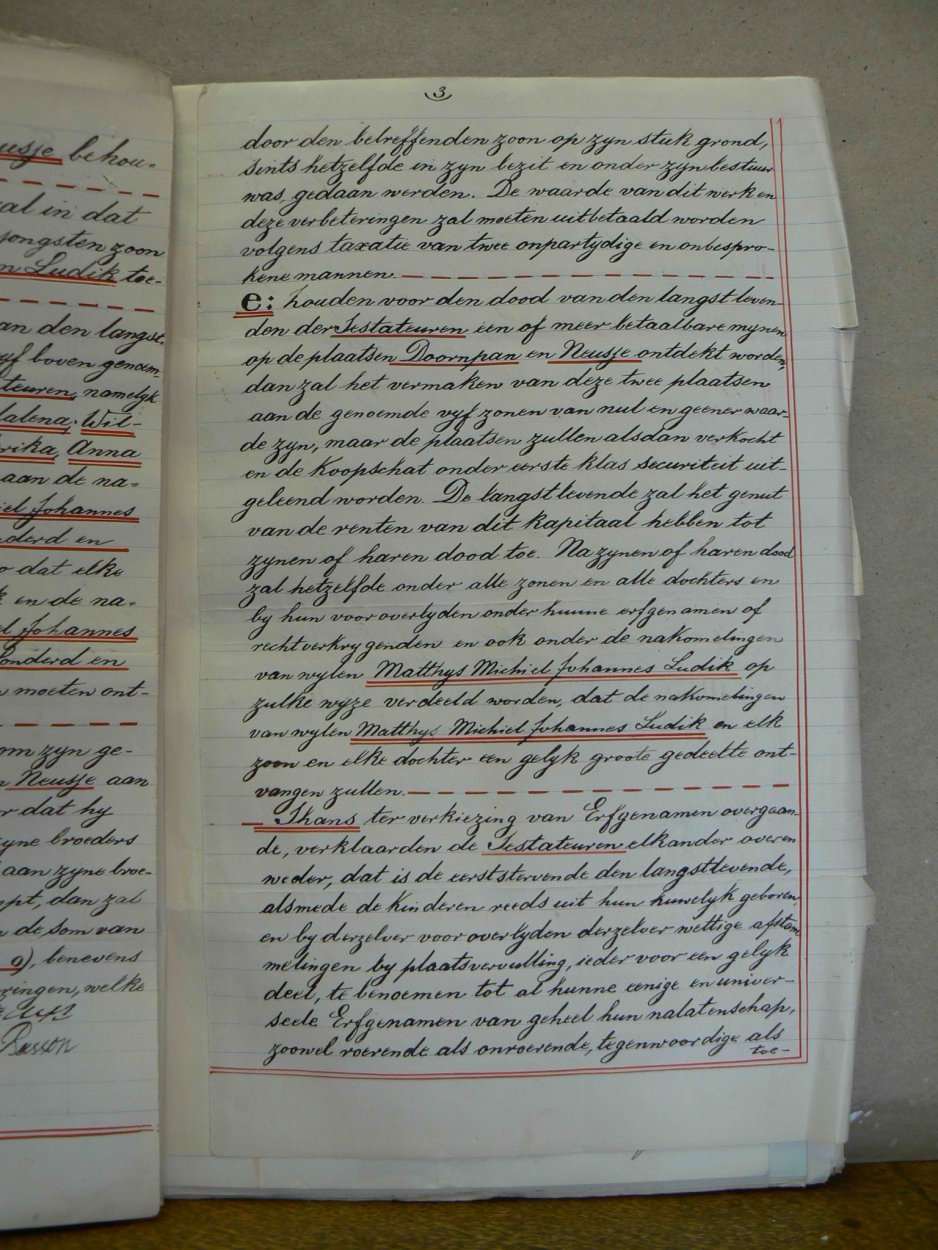 3
usje behou-
al in dat
jongsten zoon
n Ludik toe-
an den langst
yf boven genoem
teuren, namelyk
dalena, Wil-
rika, Anna
aan de na-
iel Johannes
derd en
o dat elke
k en de na-
el Johannes
onderd en
n moeten ont-
om zyn ge-
n Neusje aan
r dat hy
zyne broeders
aan zyne broe-
pt, dan zal
n de som van
o), benevens
ringen, welke
Basson
door den betreffenden zoon op zyn stuk grond,
sints hetzelfde in zyn bezit en onder zyn bestuur
was, gedaan werden. De waarde van dit werk en
deze verbeteringen zal moeten uitbetaald worden
volgens taxatie van twee onpartydige en onbespro-
kene mannen.
e: houden voor den dood van den langstleven-
den der Testateuren een of meer betaalbare mynen
op de plaatsen Doornpan en Neusje ontdekt worden,
dan zal het vermaken van deze twee plaatsen
aan de genoemde vyf zonen van nul en geener waar-
de zyn, maar de plaatsen zullen alsdan verkocht
en de Koopschat onder eerste klas securiteit uit-
geleend worden. De langstlevende zal het genut
van de renten van dit Kapitaal hebben tot
zynen of haren dood toe. Na zynen of haren dood
zal hetzelfde onder alle zonen en alle dochters en
by hun vooroverlyden onder hunne erfgenamen of
rechtverkrygenden en ook onder de nakomelingen
van wylen Matthys Michiel Johannes Ludik op
zulke wyze verdeeld worden, dat de nakomelingen
van wylen Matthys Michiel Johannes Ludik en elk
zoon en elke dochter een gelyk groote gedeelte ont-
vangen zullen.
Thans ter verkiezing van Erfgenamen overgaan-
de, verklaarden de Testateuren elkander over en
weder, dat is de eerststervende den langstlevende,
alsmede de Kinderen reeds uit hun huwelyk geboren
en by derzelver vooroverlyden derzelver wettige afstam
melingen by plaatsvervulling, ieder voor een gelyk
deel, te benoemen tot al hunne eenige en univer-
seele Erfgenamen van geheel hun nalatenschap,
zoowel roerende als onroerende, tegenwoordige als
toe-